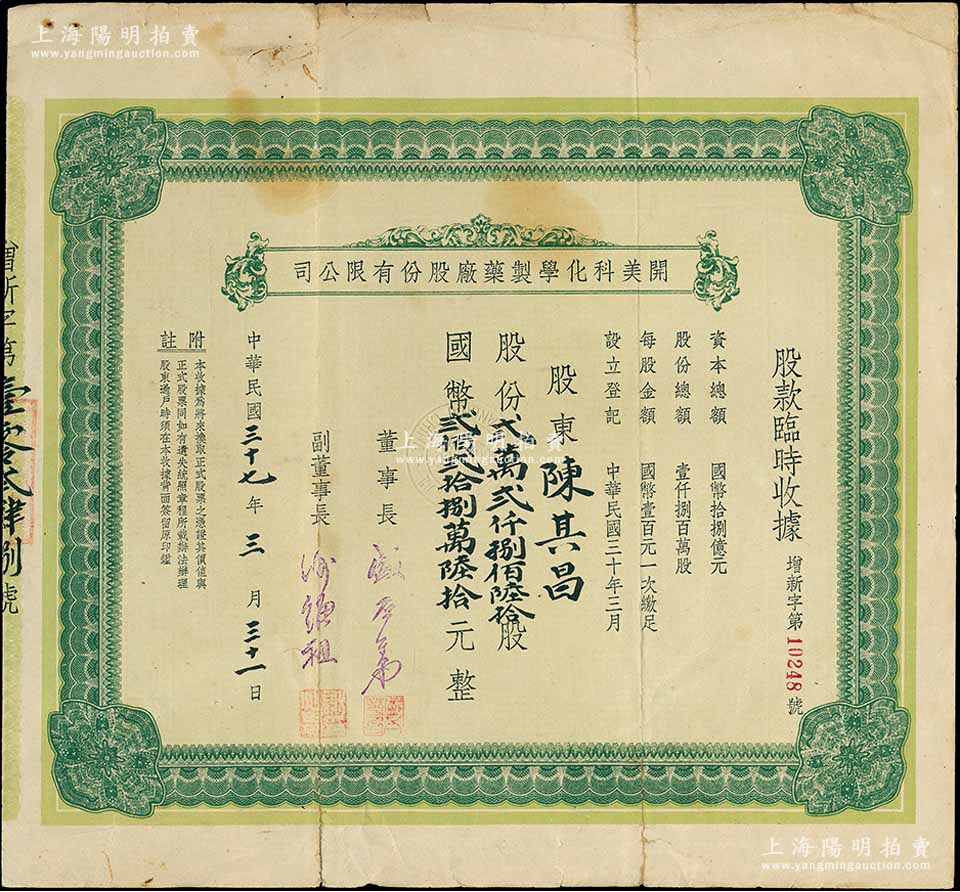 上海陽明拍賣
www.yangmingauction.com
開美科化學製藥廠股份有限公司
股款臨時收據 增新字第10248號
資本總額 國幣拾捌億元
股份總額 壹仟捌百萬股
每股金額 國幣壹百元一次繳足
設立登記 中華民國三十年三月
股東陳其昌
股份弍萬弍仟捌佰陸拾股
國幣拾捌萬陸元整
董事長
副董事長
中華民國三十七年三月三十一日
附註
本收據為將來換取正式股票之憑證其價值與
正式股票同如有遺失統照章程所載辦法辦理
股東過戶時須在本收據背面簽留原印鑑
增新字第壹零弍肆捌號
上海陽明拍賣
www.yangmingauction.com
上海陽明拍賣
www.yangmingauction.com